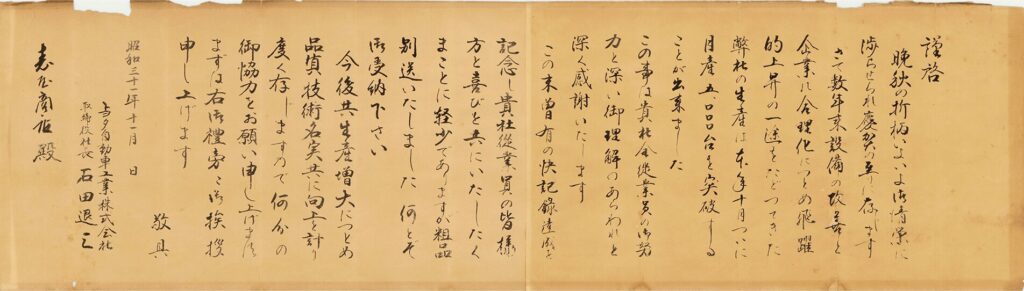 謹啓
晩秋の折柄いよいよ御清栄に
渉らせられ慶賀の至に存じます
さて数年来設備の改善と
企業の合理化につとめ飛躍
的上昇の一途をたどってきた
弊社の生産は本年十月ついに
月産五、〇〇〇台を突破する
ことが出来ました
この事は貴社全従業員の御努
力と深い御理解のあらわれと
深く感謝いたします
この未曽有の快記録達成を
記念し貴社従業員の皆様
方と喜びを共にいたしたく
まことに軽少でありますが粗品
別送いたしました何とぞ
御受納下さい
今後共生産増大につとめ
品質技術名実共に向上を計り
度く存じますので何分の
御協力をお願い申し上げます
まずは右御禮旁々御挨拶
申し上げます
敬具
昭和三十一年十一月 日
トヨタ自動車工業株式会社
取締役社長 石田退三
商店殿